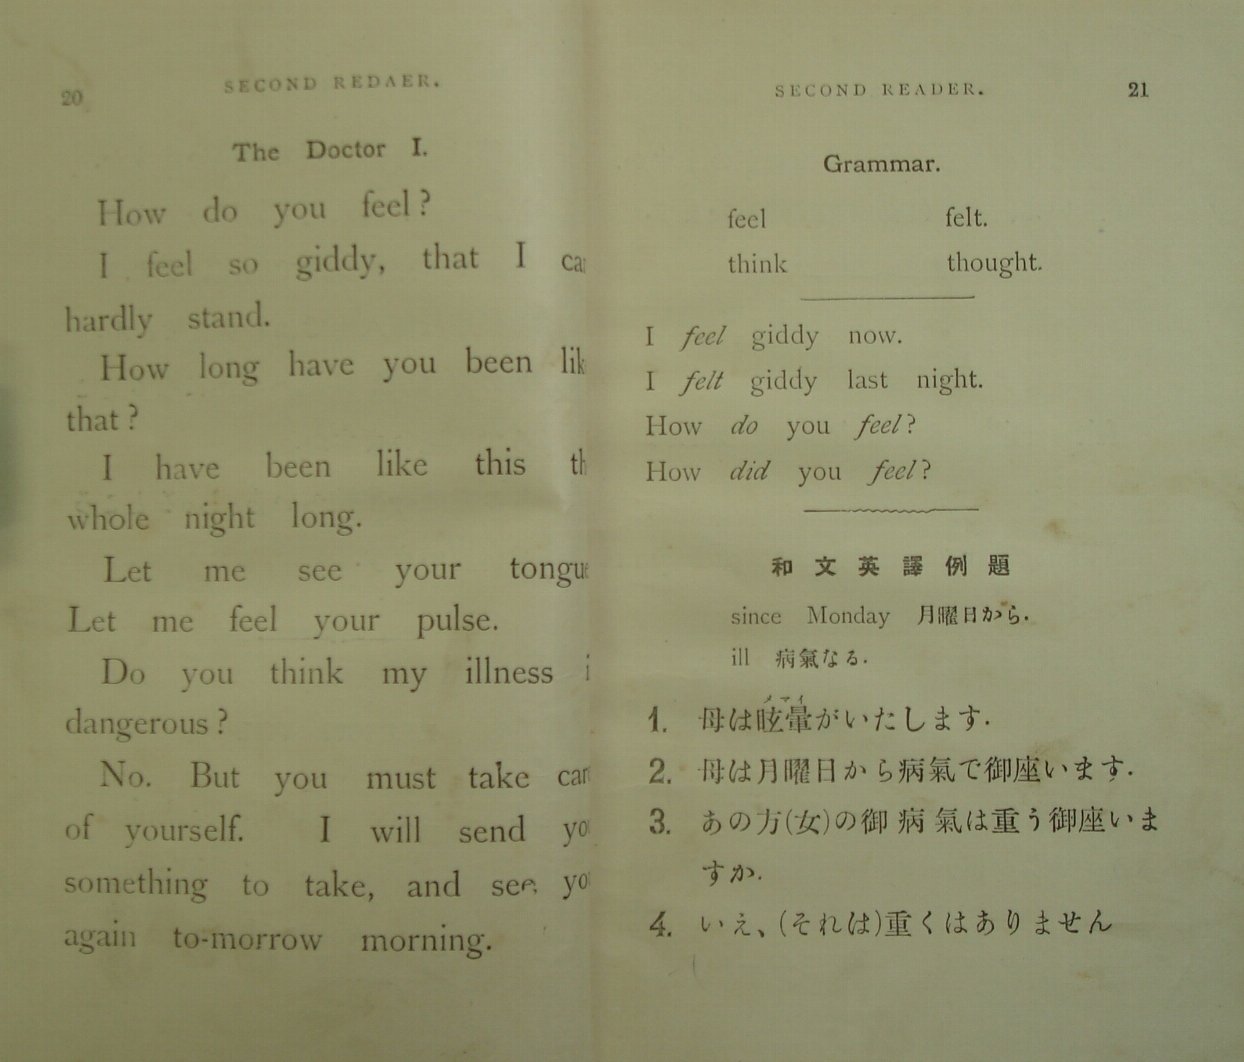 20
SECOND REDAER.
The Doctor I.
How do you feel?
I feel so giddy, that I
hardly stand.
How long have you been
that?
I have been like this
whole night long.
Let me see your tongue
Let me feel your pulse.
Do you think my illness
dangerous?
No. But you must take
of yourself. I will send
something to take, and see,
again to-morrow morning.
SECOND READER.
21
Grammar.
feel felt.
think thought.
I feel giddy now.
I felt giddy last night.
How do you feel?
How did you feel?
和文英譯例題
since Monday 月曜日から.
ill 病氣なる.
メマイ
1. 母は眩暈がいたします.
2. 母は月曜日から病氣で御座います.
3. あの方(女)の御病氣は重う御座いま
すか.
4. いえ、(それは)重くはありません